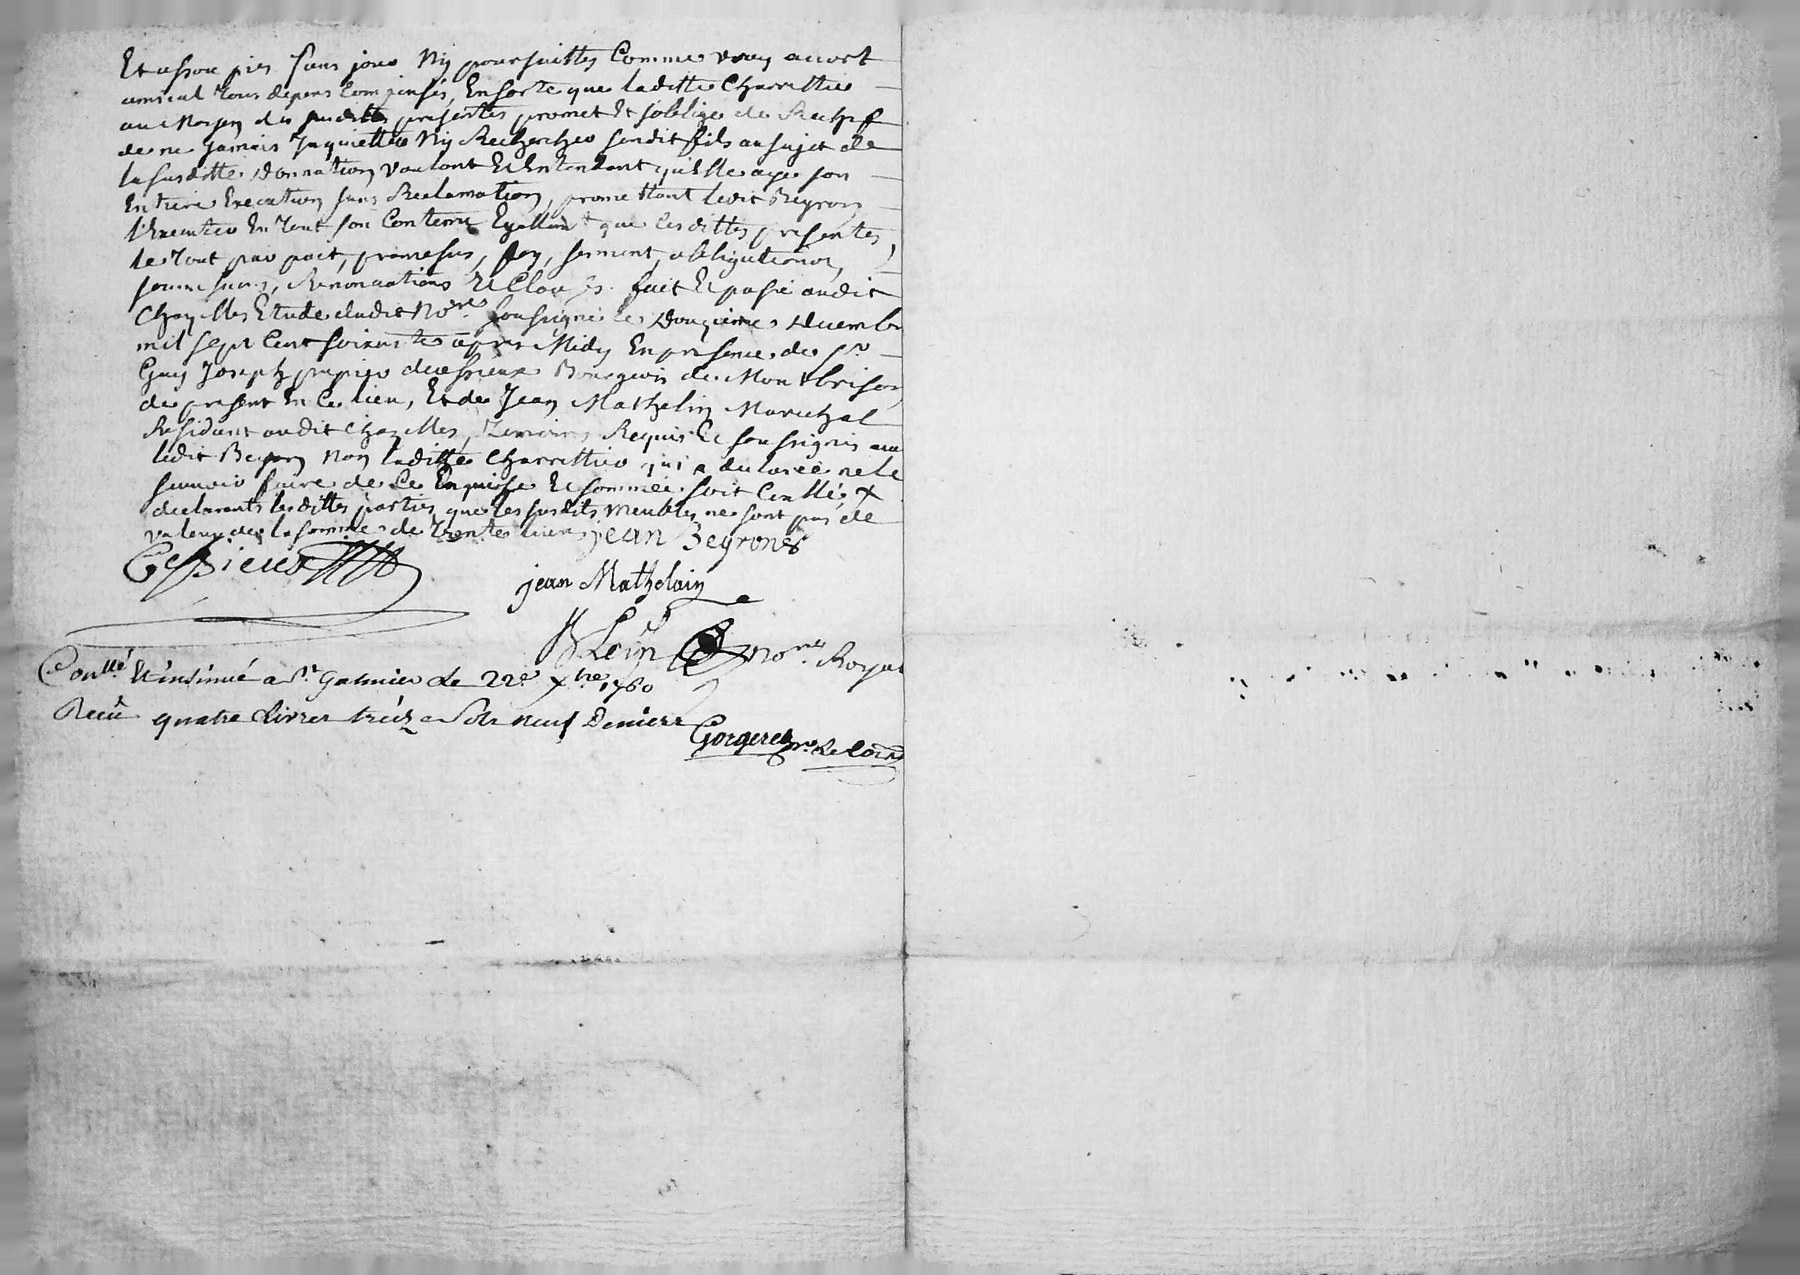 Et assou pies sans jour Ny poursuittes Comme vray accort
amical tous depens Compensés, Ensorte que laditte Charrettier
au Moyen des susdittes presentes promet Et s'oblige de
de ne Jamais Inquietter Ny Rechercher sondit fils au sujet de
la susditte donnation voulant Et Entendant qu'Elle aye son
Entiere Execution sans Reclamation, promettant ledit Beyron
l'Executer En tout son Contenu Egallement que lesdittes presentes,
le tout par pact, promesses, foy, serment, obligations,
soumissions, Renonciations Et Clauses. fait Et passé audit
Chazelles Etude dudit No.re soussigné le douzieme decembre
mil sept Cent soixante apres Midy En presence de Sr
Guy Joseph Bourgeois de Montbrison
de present En Ce lieu, Et de Jean Mathelin Marechal
Residant audit Chazelles, temoins Requis Et soussignés avec
ledit Beyron Non laditte Charrettier qui a declaré ne le
sçavoir faire de Ce Enquise Et sommée soit Cenllé x
declarants lesdittes parties que les susdits meubles ne sont pas de
valeur de la somme de trente livres jean Beyrones
jean Mathelain
Blein No.re Royal
Conllé Et insinué a St Galmier le 22e xbre 1760
Receu quatre Livres treize sols neuf Deniers
Gorgeret